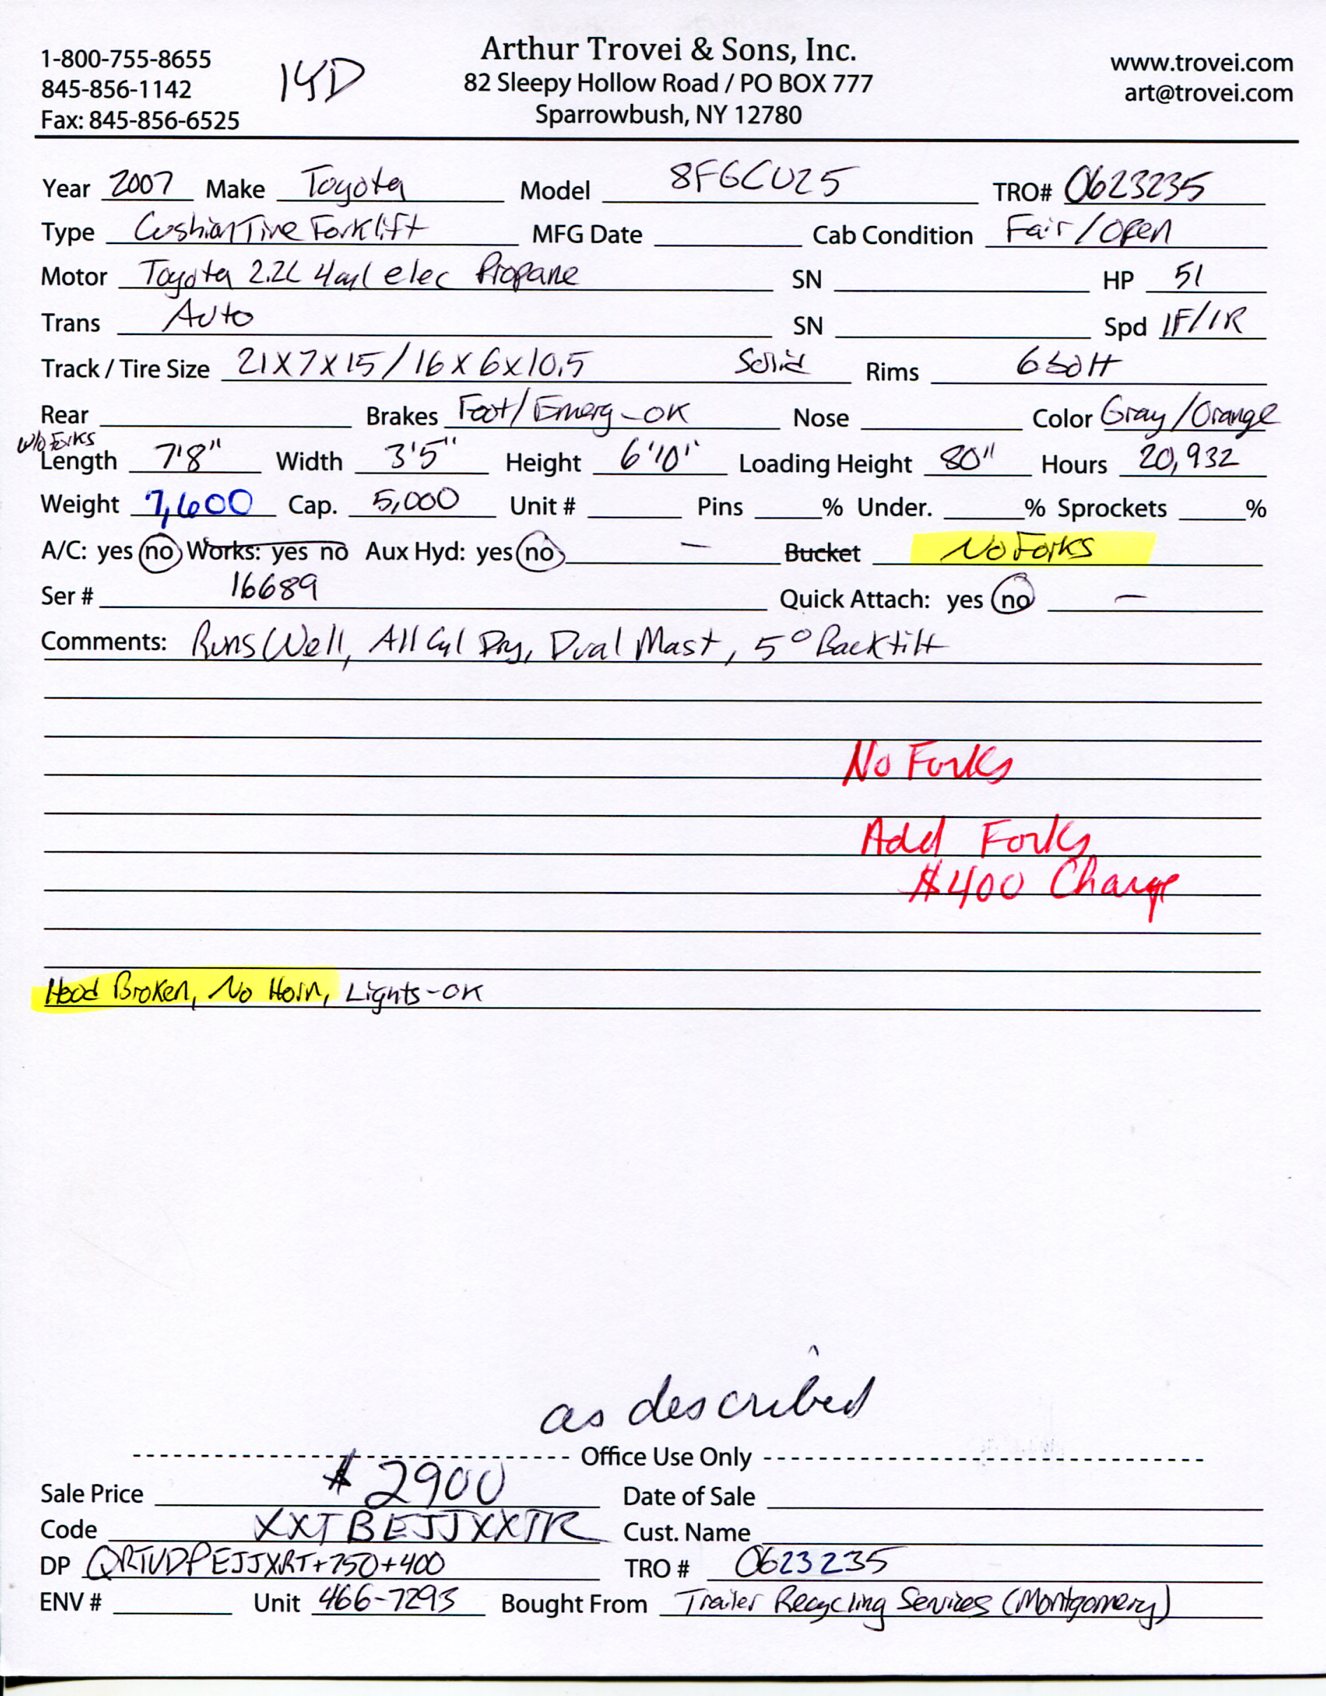 1-800-755-8655
845-856-1142
Fax: 845-856-6525
14D
Arthur Trovei & Sons, Inc.
82 Sleepy Hollow Road / PO BOX 777
Sparrowbush, NY 12780
www.trovei.com
art@trovei.com
Year 2007 Make Toyota Model 8FGCU25 TRO# 0623235
Type Cushion Tire Forklift MFG Date Cab Condition Fair/Open
Motor Toyota 2.2L 4cyl elec Propane SN HP 51
Trans Auto SN Spd 1F/1R
Track / Tire Size 21x7x15/16x6x10.5 Solid Rims 6 bolt
Rear Brakes Foot/Emerg-OK Nose Color Gray/Orange
w/o Forks
Length 7'8" Width 3'5" Height 6'10" Loading Height 80" Hours 20,932
Weight 7,600 Cap. 5,000 Unit # Pins % Under. % Sprockets %
A/C: yes no Works: yes no Aux Hyd: yes no — Bucket No Forks
Ser # 16689 Quick Attach: yes no —
Comments: Runs Well, All Cyl Dry, Dual Mast, 5° Backtilt
No Forks
Add Forks
$400 Charge
Hood Broken, No Horn, Lights-OK
as described
Office Use Only
Sale Price $2900 Date of Sale
Code XXTBEJJXXTR Cust. Name
DP QRTVDPEJJXRT+750+400 TRO # 0623235
ENV # Unit 466-7293 Bought From Trailer Recycling Services (Montgomery)